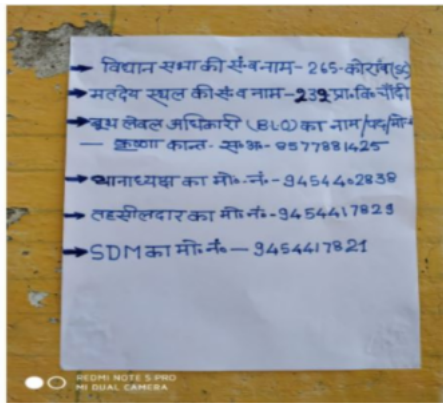 → विधान सभा की सं. व नाम - 265. कोरांव (SC)
→ मतदेय स्थल की सं. व नाम - 239 प्रा. वि. चाँदी
→ बूथ लेवल अधिकारी (BLO) का नाम/पद/मो.
— कृष्णा कान्त. स.अ. - 9577881425
→ थानाध्यक्ष का मो. नं. - 9454402838
→ तहसीलदार का मो. नं. - 9454417829
→ SDM का मो. नं. — 9454417821
REDMI NOTE 5 PRO
MI DUAL CAMERA